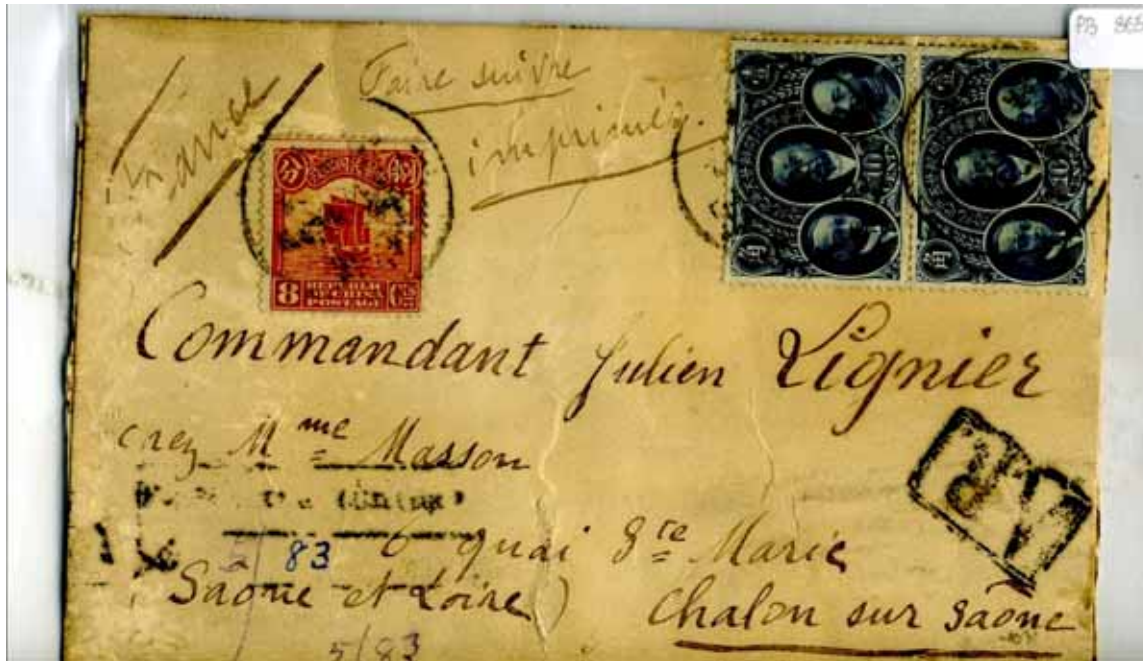 PB 865
Faire suivre
imprimés.
France
8
REPUBLIC
OF CHINA
POSTAGE
10
10
角
角
Commandant Julien Lignier
chez Mme Masson
6 quai Ste Marie
5/ 83
Saône et Loire)
Chalon sur Saône
5/83